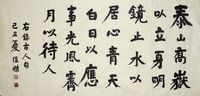 泰山高嶽
以立身明
鏡止水以
居心青天
白日以應
事光風霽
月以待人
右錄古人句
己丑夏